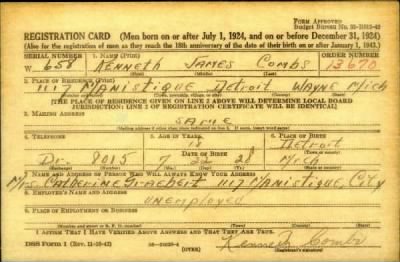 FORM APPROVED
Budget Bureau No. 33-R012-42
REGISTRATION CARD (Men born on or after July 1, 1924, and on or before December 31, 1924)
(Also for the registration of men as they reach the 18th anniversary of the date of their birth on or after January 1, 1943.)
SERIAL NUMBER 1. NAME (Print) ORDER NUMBER
W 658 Kenneth James Combs 13670
2. PLACE OF RESIDENCE (Print)
1117 Manistique Detroit Wayne Mich
[THE PLACE OF RESIDENCE GIVEN ON LINE 2 ABOVE WILL DETERMINE LOCAL BOARD
JURISDICTION; LINE 2 OF REGISTRATION CERTIFICATE WILL BE IDENTICAL]
3. MAILING ADDRESS
Same
4. TELEPHONE 5. AGE IN YEARS 6. PLACE OF BIRTH
18 Detroit
DATE OF BIRTH
Dr. 8015 7 Mich
7. NAME AND ADDRESS OF PERSON WHO WILL ALWAYS KNOW YOUR ADDRESS
Mrs. Catherine 1117 Manistique, City
8. EMPLOYER'S NAME AND ADDRESS
Unemployed
9. PLACE OF EMPLOYMENT OR BUSINESS
I AFFIRM THAT I HAVE VERIFIED ABOVE ANSWERS AND THAT THEY ARE TRUE.
DSS FORM 1 (Rev. 11-16-42) (OVER) Kenneth Combs